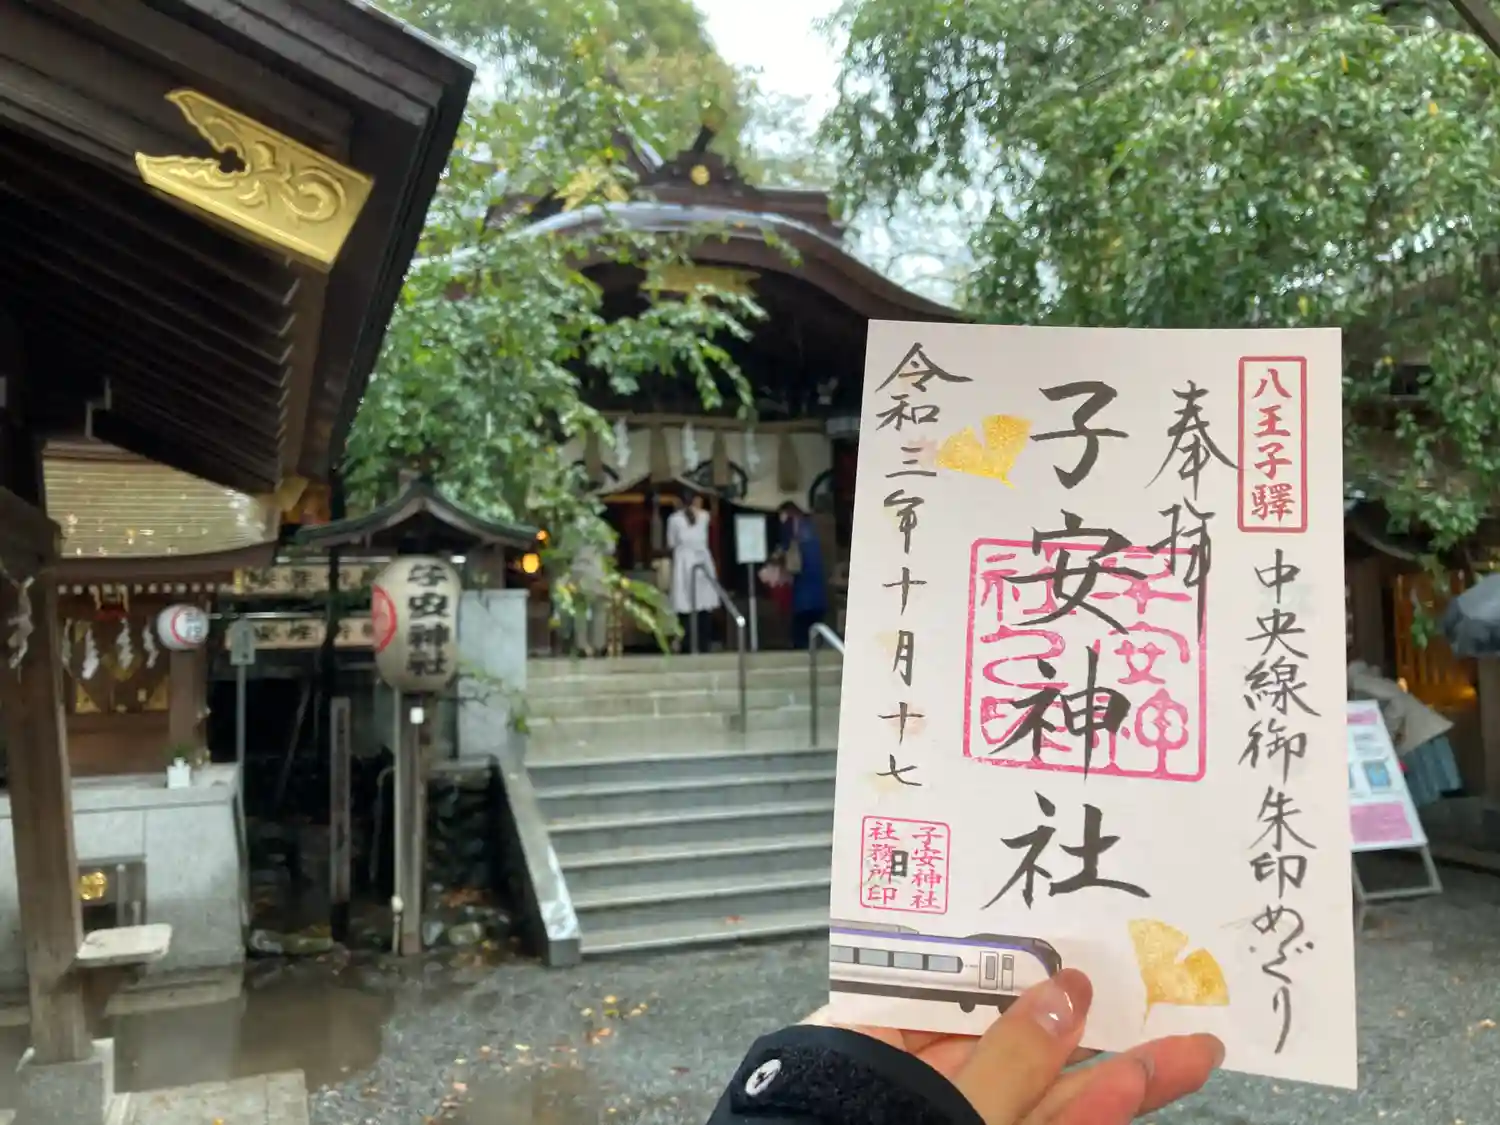 八王子驛
中央線御朱印めぐり
奉拝
子安神社
子安神
社之印
令和三年十月十七
日
子安神社
社務所印
子安神社